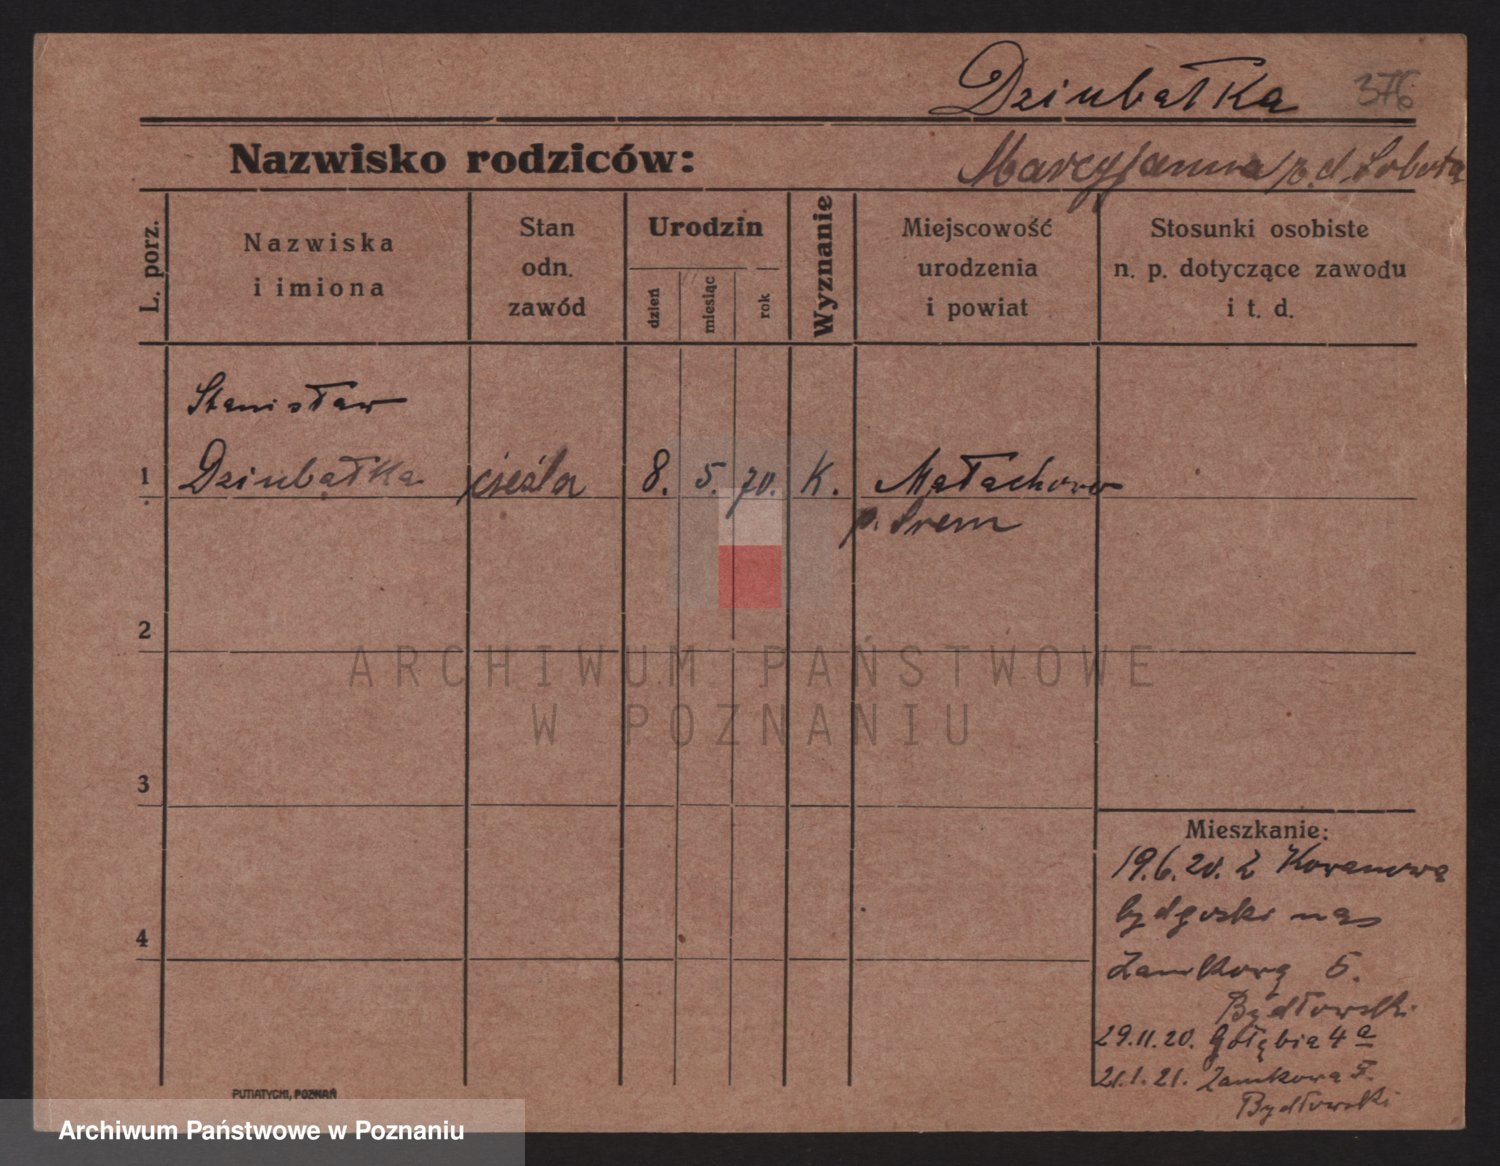 Dziubałka 376
Nazwisko rodziców:
Maryjanna p. d. Sobota
L. porz.
Nazwiska
i imiona
Stan
odn.
zawód
Urodzin
dzień
miesiąc
rok
Wyznanie
Miejscowość
urodzenia
i powiat
Stosunki osobiste
n. p. dotyczące zawodu
i t. d.
Stanisław
1 Dziubałka cieśla 8. 5. 70. K. Małachowo
p. Śrem
2
ARCHIWUM PAŃSTWOWE
W POZNANIU
3
Mieszkanie:
19.6.20. Z
bydgoski na
4
Zamkową 5.
Bydłowski
29.11.20. Gołębia 4 a
21.1.21. Zamkowa 5.
Bydłowski
PUTIATYCKI, POZNAŃ
Archiwum Państwowe w Poznaniu